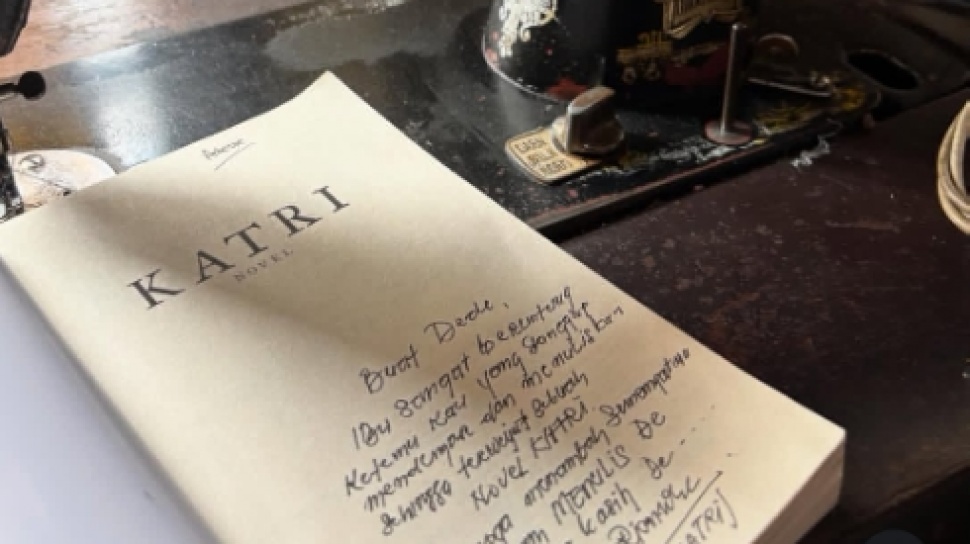 KATRI
NOVEL
Buat Dede,
Ibu sangat beruntung
Ketemu Kau yang sanggup
mendengar dan menuliskan
Sehingga terwujud Sebuah
Novel KATRI.
menambah Semangatmu
MENULIS De
Kasih De ...
KATRI]